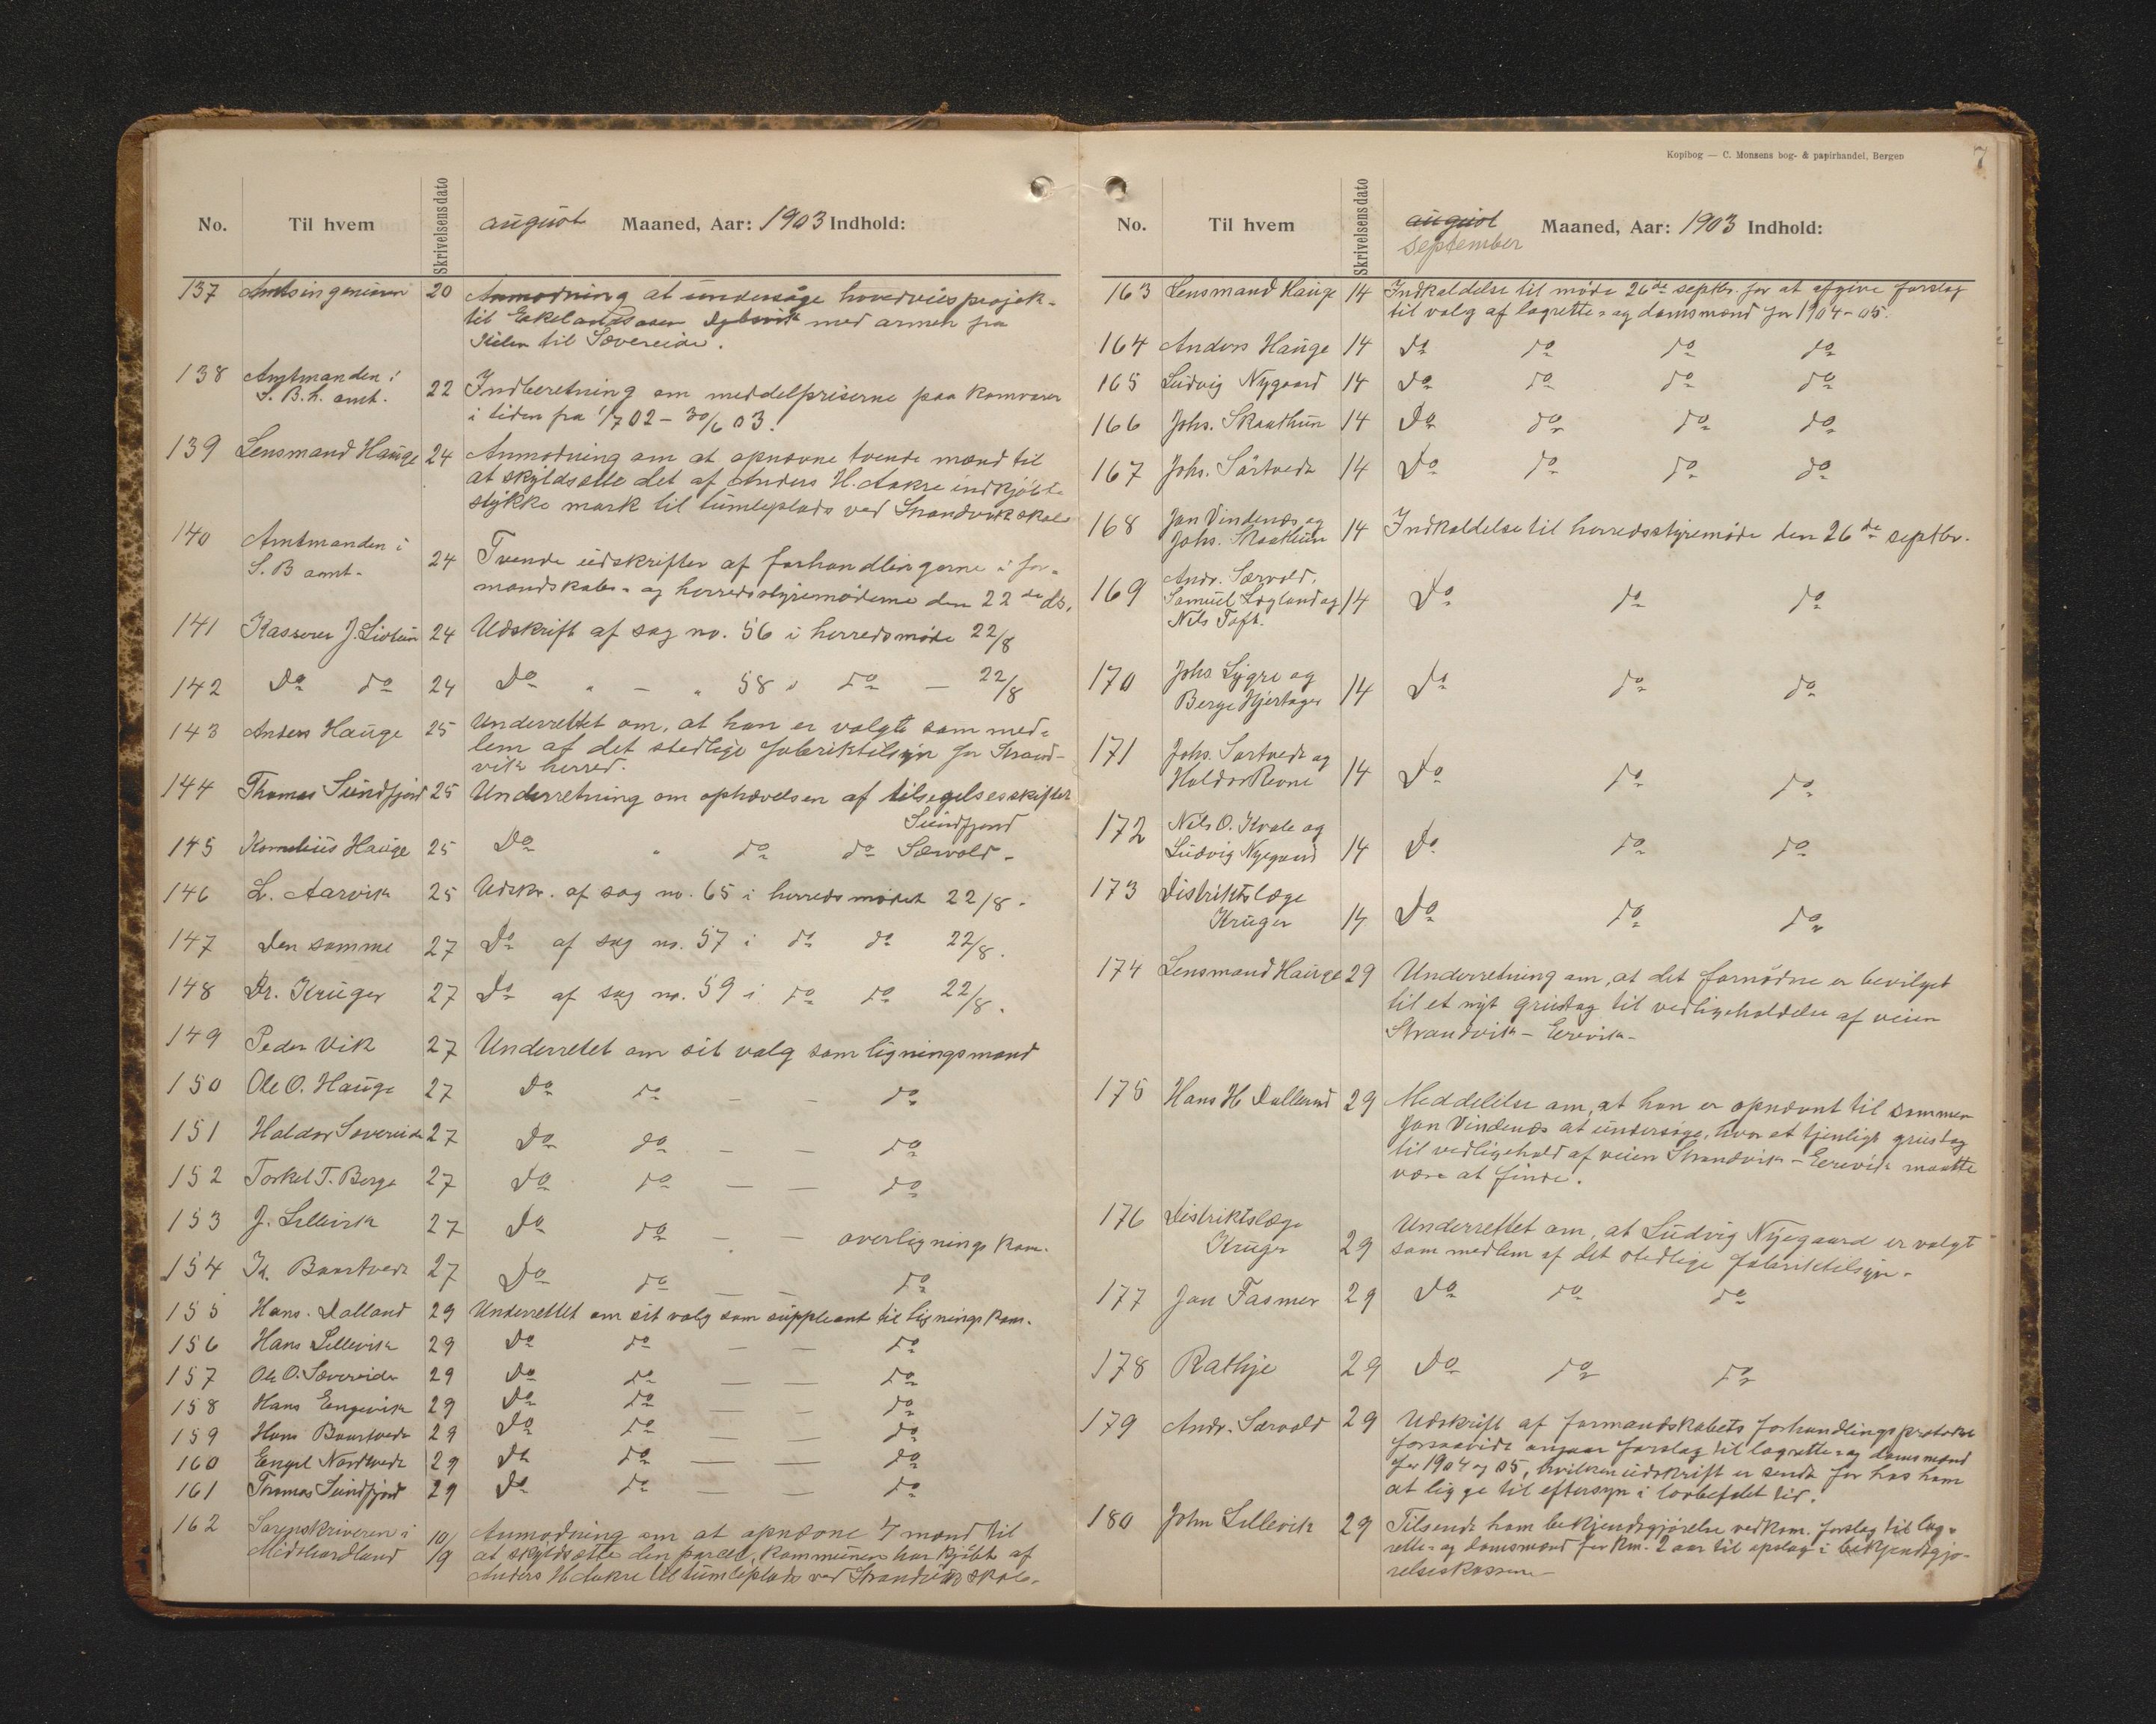 No. Til hvem Skrivelsens dato august Maaned, Aar: 1903 Indhold:
137 Amtsingeniøren 20 Anmodning at undersøge hovedveisprojek-
til med armen fra
til Sævereide.
138 Amtmanden i
S. B. h. amt. 22 Indberetning om meddelpriserne paa kornvarer
i tiden fra 1/7 02 - 30/6 03.
139 Lensmand Hauge 24 Anmodning om at opnævne tvende mænd til
at skyldsætte det af Anders H. Aakre indkjøbte
stykke mark til tumleplads ved Strandvik skole
140 Amtmanden i
S. B amt. 24 Tvende udskrifter af forhandlingerne i for-
mandskabs- og herredsstyremøderne den 22de ds.
141 Kasserer J. Lidtun 24 Udskrift af sag no. 56 i herredsmøde 22/8
142 Do do 24 Do " — " 58 " do — 22/8
143 Anders Hauge 25 Underrettet om, at han er valgt som med-
lem af det stedlige fabriktilsyn for Strand-
vik herred.
144 Thomas Sundfjord 25 Underretning om ophævelsen af tilsigelsesskifter
Sundfjord
145 Kornelius Hauge 25 Do " do do Sævold.
146 L. Aarvik 25 Udskr. af sag no. 65 i herredsmødet 22/8.
147 Den samme 27 Do af sag no. 57 i do do 22/8.
148 Dr. Krüger 27 Do af sag no. 59 i do do 22/8.
149 Peder Vik 27 Underretet om sit valg som ligningsmand
150 Ole O. Hauge 27 Do do — — do
151 Haldor Sævereide 27 Do do — — do
152 Torkel T. Berge 27 Do do — — do
153 J. Lillevik 27 Do do — — overlignings kom.
154 Baartvedt 27 Do do — — do
155 Hans. Dalland 29 Underrettet om sit valg som suppleant til lignings kom.
156 Hans Lillevik 29 Do do — — do
157 Ole O. Sævereide 29 Do do — — do
158 Hans Engevik 29 Do do — — do
159 Hans Baartvedt 29 Do do — — do
160 Engel Nordtvedt 29 Do do — — do
161 Thomas Sundfjord 29 Do do — — do
162 Sorenskriveren i
Midthordland 10/9 Anmodning om at opnævne 7 mænd til
at skyldsætte den parcel, kommunen har kjøbt af
Anders H Aakre til tumleplads ved Strandvik skole.
Kopibog — C. Monsens bog- & papirhandel, Bergen 7
No. Til hvem Skrivelsens dato august Maaned, Aar: 1903 Indhold:
september
163 Lensmand Hauge 14 Indkaldelse til møde 26de septbr. for at afgive forslag
til valg af lagrette- og domsmænd for 1904-05.
164 Anders Hauge 14 Do do do do
165 Ludvig Nygaard 14 Do do do do
166 Johs. Skaathun 14 Do do do do
167 Johs. Sørtvedt 14 Do do do do
168 Jon Vindenæs og
Johs. Skaathun 14 Indkaldelse til herredsstyremøde den 26de septbr.
169 Andr. Sævold,
Samuel Løgland og 14 Do do do
Nils Toft.
170 Johs Lygre og
Berge Hjertager 14 Do do do
171 Johs. Sørtvedt og
Haldor Revne 14 Do do do
172 Nils O. Kvale og
Ludvig Nygaard 14 Do do do
173 Distriktslæge
Krüger 14 Do do do
174 Lensmand Hauge 29 Underretning om, at det fornødne er bevilget
til et nyt grustag til vedligeholdelse af veien
Strandvik - Eerevik-
175 Hans H Dalland 29 Meddelelse om, at han er opnævnt til sammen
Jon Vindenæs at undersøge, hvor et tjenligt grustag
til vedligehold af veien Strandvik - Eerevik maatte
være at finde.
176 Distriktslæge
Krüger 29 Underrettet om, at Ludvig Nygaard er valgt
som medlem af det stedlige fabriktilsyn.
177 Jan Fasmer 29 Do do do
178 Rathje 29 Do do do
179 Andr. Sævold 29 Udskrift af formandskabets forhandlingsprotokol
forsaavidt angaar forslag til lagrette- og domsmænd
for 1904 og 05, hvilken udskrift er sendt for hos ham
at ligge til eftersyn i lovbefalet tid.
180 John Lillevik 29 Tilsendt ham bekjendtgjørelse vedkom. forslag til lag-
rette- og domsmænd for km. 2 aar til opslag i bekjendtgjø-
relseskassene—